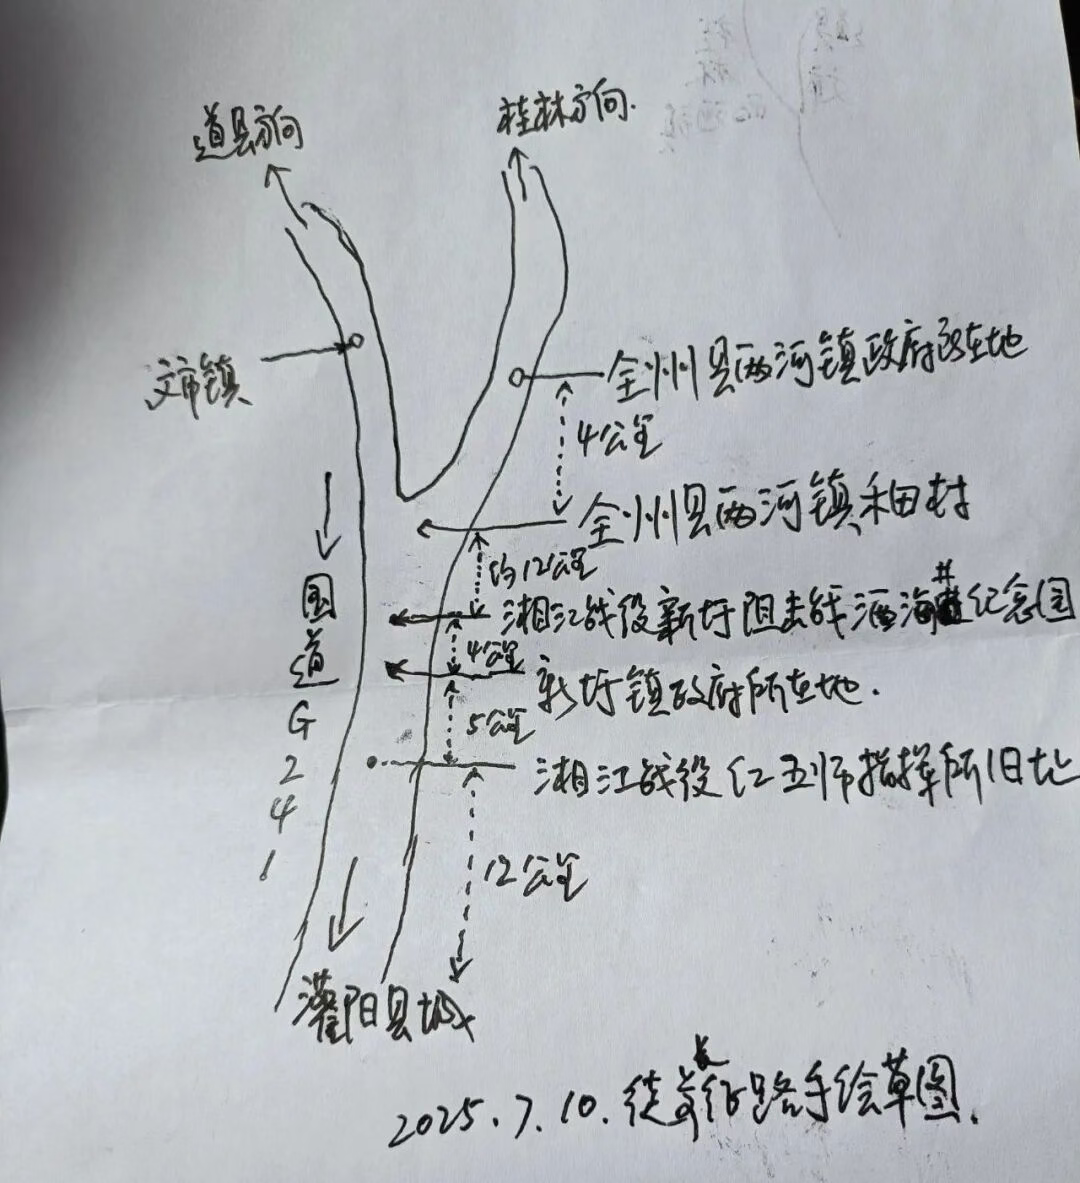 道县方向
桂林方向.
文市镇
全州县两河镇政府所在地
4公里
全州县两河镇禾田村
约12公里
湘江战役新圩阻击战酒海井纪念园
4公里
新圩镇政府所在地.
5公里
湘江战役红五师指挥所旧址
12公里
国道G241
灌阳县城
2025.7.10.徒步长征路手绘草图.